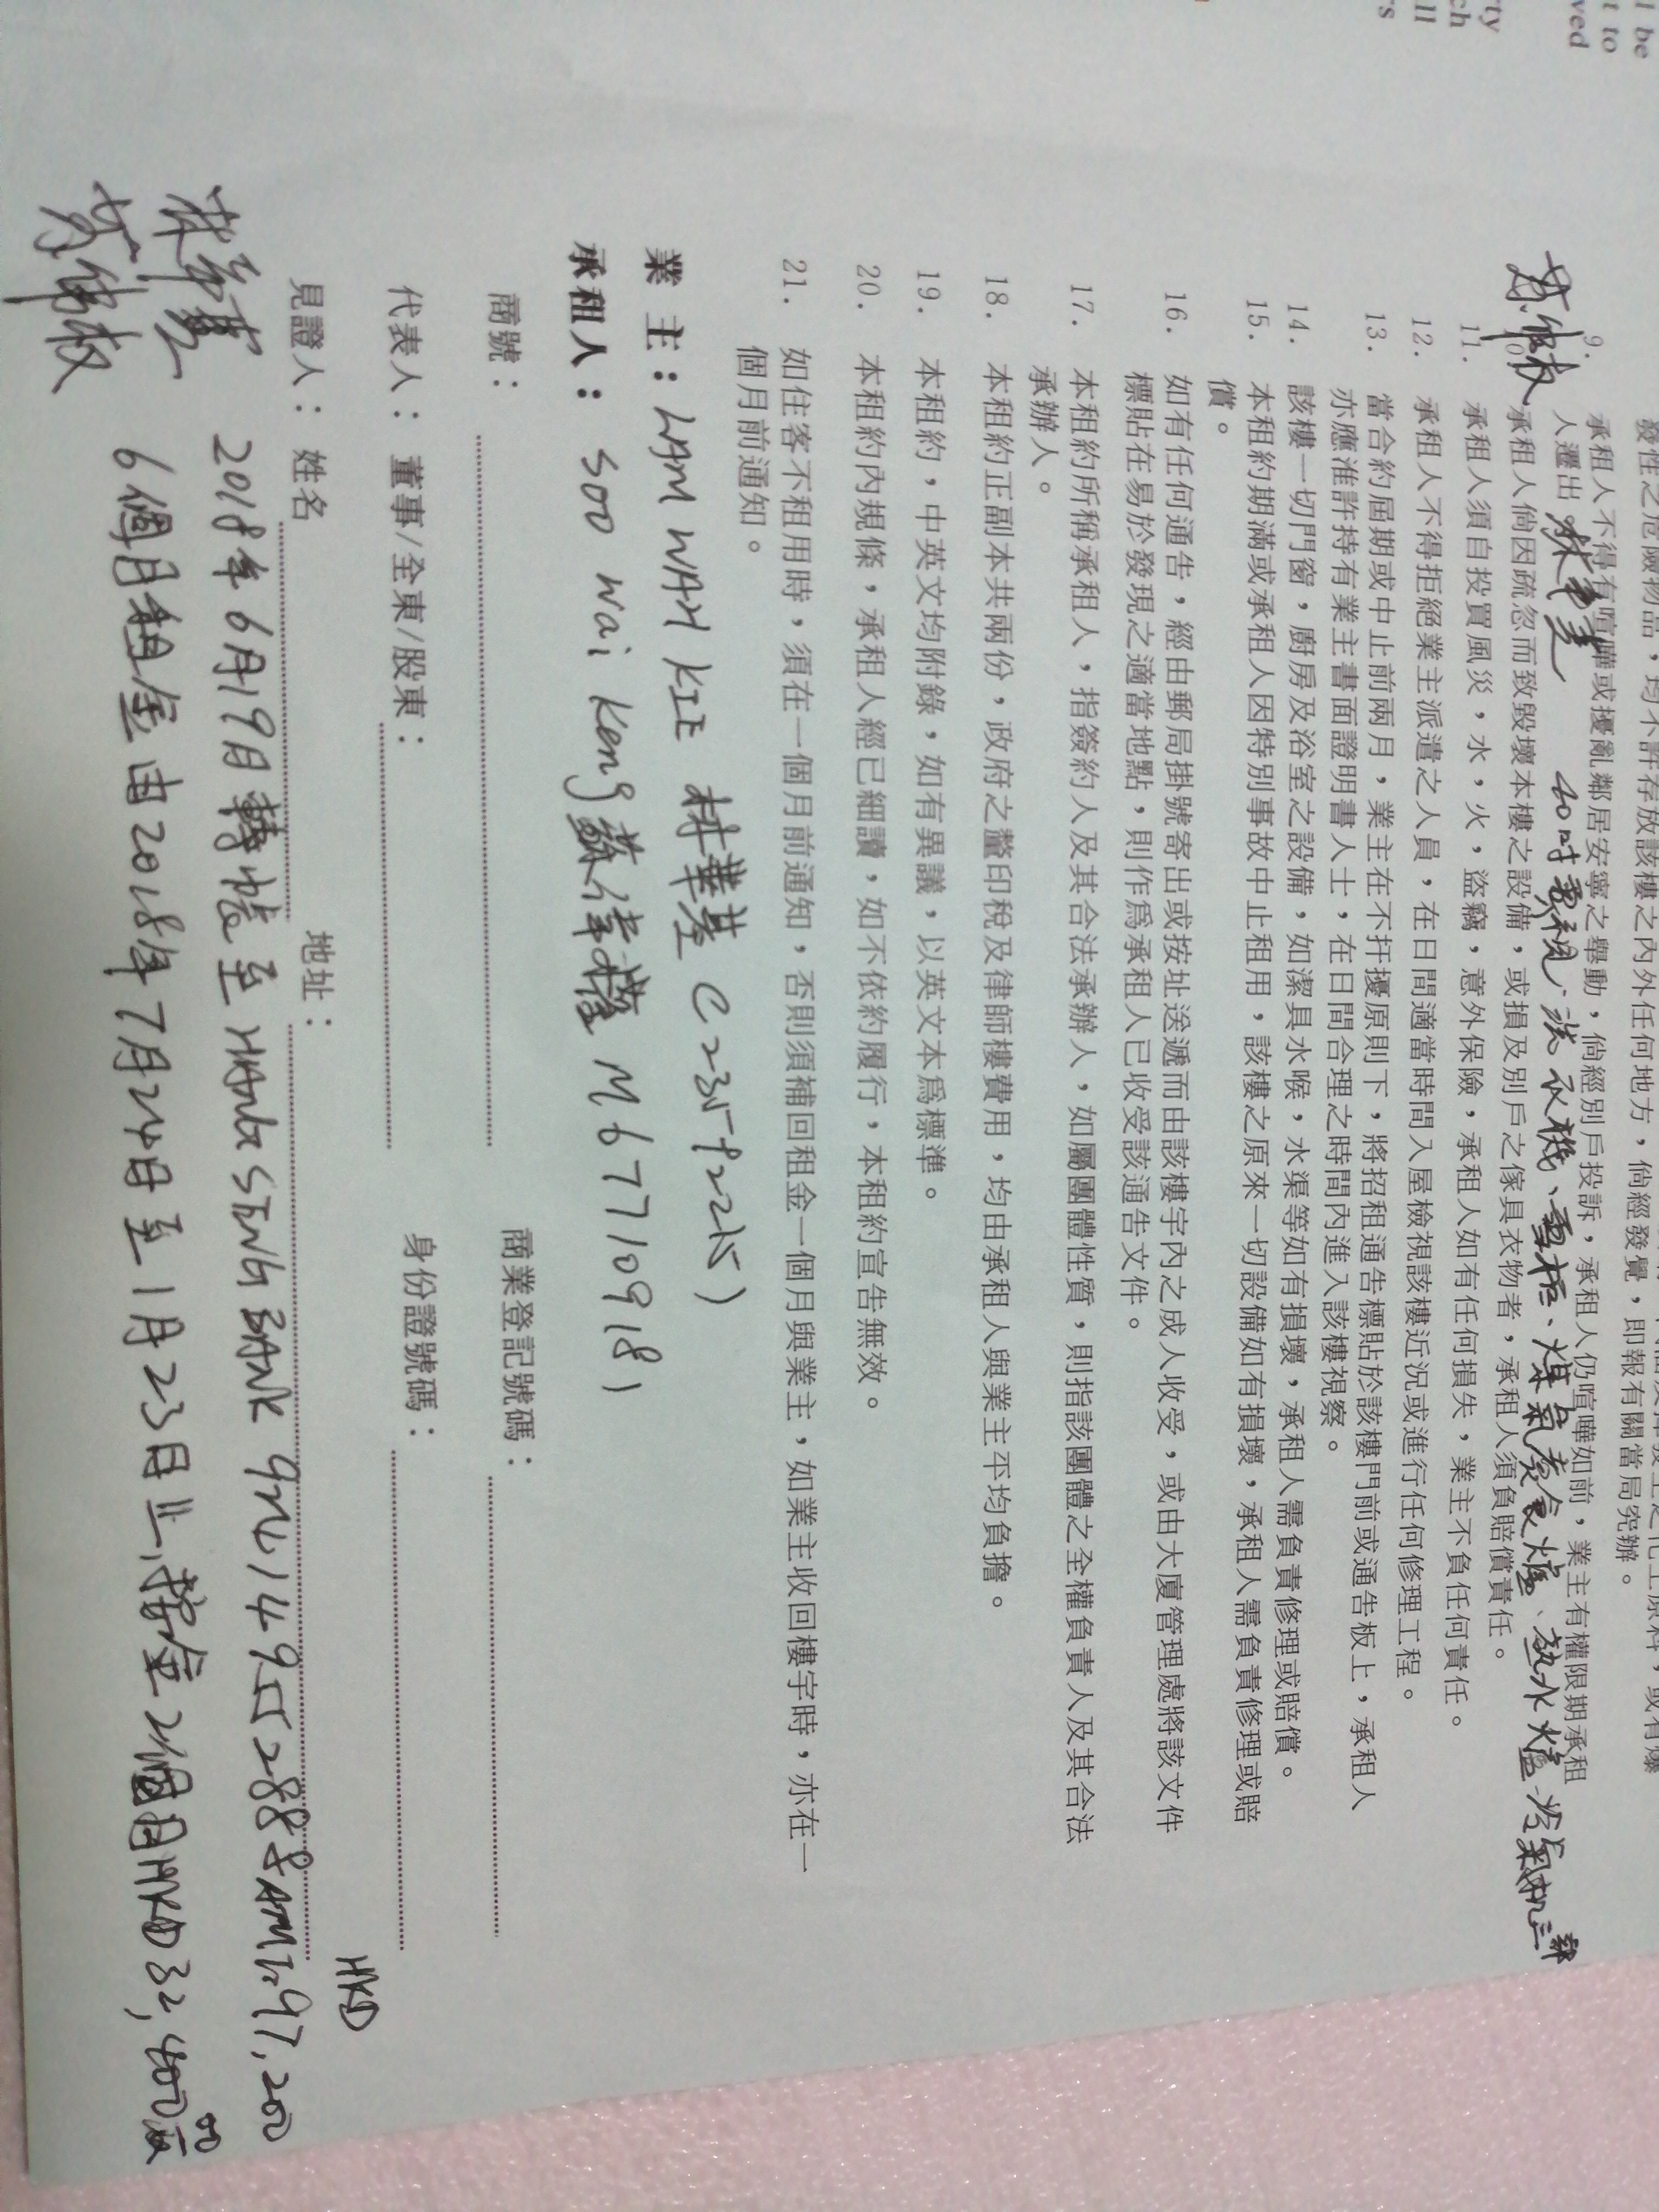 l be
t to
ved
ty
ch
ll
s
發性之危險物品，均不許存放該樓之內外任何地方，倘經發覺，即報有關當局究辦。
9. 承租人不得有喧嘩或擾亂鄰居安寧之舉動，倘經別戶投訴，承租人仍喧嘩如前，業主有權限期承租
人遷出。
40吋電視、洗衣機、雪柜、煤氣煮食爐、熱水爐、冷氣机三部
10. 承租人倘因疏忽而致毀壞本樓之設備，或損及別戶之傢具衣物者，承租人須負賠償責任。
11. 承租人須自投買風災，水，火，盜竊，意外保險，承租人如有任何損失，業主不負任何責任。
12. 承租人不得拒絕業主派遣之人員，在日間適當時間入屋檢視該樓近況或進行任何修理工程。
13. 當合約屆期或中止前兩月，業主在不扞擾原則下，將招租通告標貼於該樓門前或通告板上，承租人
亦應准許持有業主書面證明書人士，在日間合理之時間內進入該樓視察。
14. 該樓一切門窗，廚房及浴室之設備，如潔具水喉，水渠等如有損壞，承租人需負責修理或賠償。
15. 本租約期滿或承租人因特別事故中止租用，該樓之原來一切設備如有損壞，承租人需負責修理或賠
償。
16. 如有任何通告，經由郵局掛號寄出或按址送遞而由該樓宇內之成人收受，或由大廈管理處將該文件
標貼在易於發現之適當地點，則作爲承租人已收受該通告文件。
17. 本租約所稱承租人，指簽約人及其合法承辦人，如屬團體性質，則指該團體之全權負責人及其合法
承辦人。
18. 本租約正副本共兩份，政府之釐印稅及律師樓費用，均由承租人與業主平均負擔。
19. 本租約，中英文均附錄，如有異議，以英文本爲標準。
20. 本租約內規條，承租人經已細讀，如不依約履行，本租約宣告無效。
21. 如住客不租用時，須在一個月前通知，否則須補回租金一個月與業主，如業主收回樓宇時，亦在一
個月前通知。
業 主：LAM WAH KIE 林華基 C235922(5)
承租人：SOO Wai Keng 蘇偉 M677109(8)
商號： 商業登記號碼：
代表人：董事/全東/股東： 身份證號碼：
見證人：姓名 地址： HKD
2018年6月19日轉帳至HANG SENG BANK 924149552888 AMT:97,200
6個月租金由2018年7月24日至1月23日 按金2個月HKD32,400